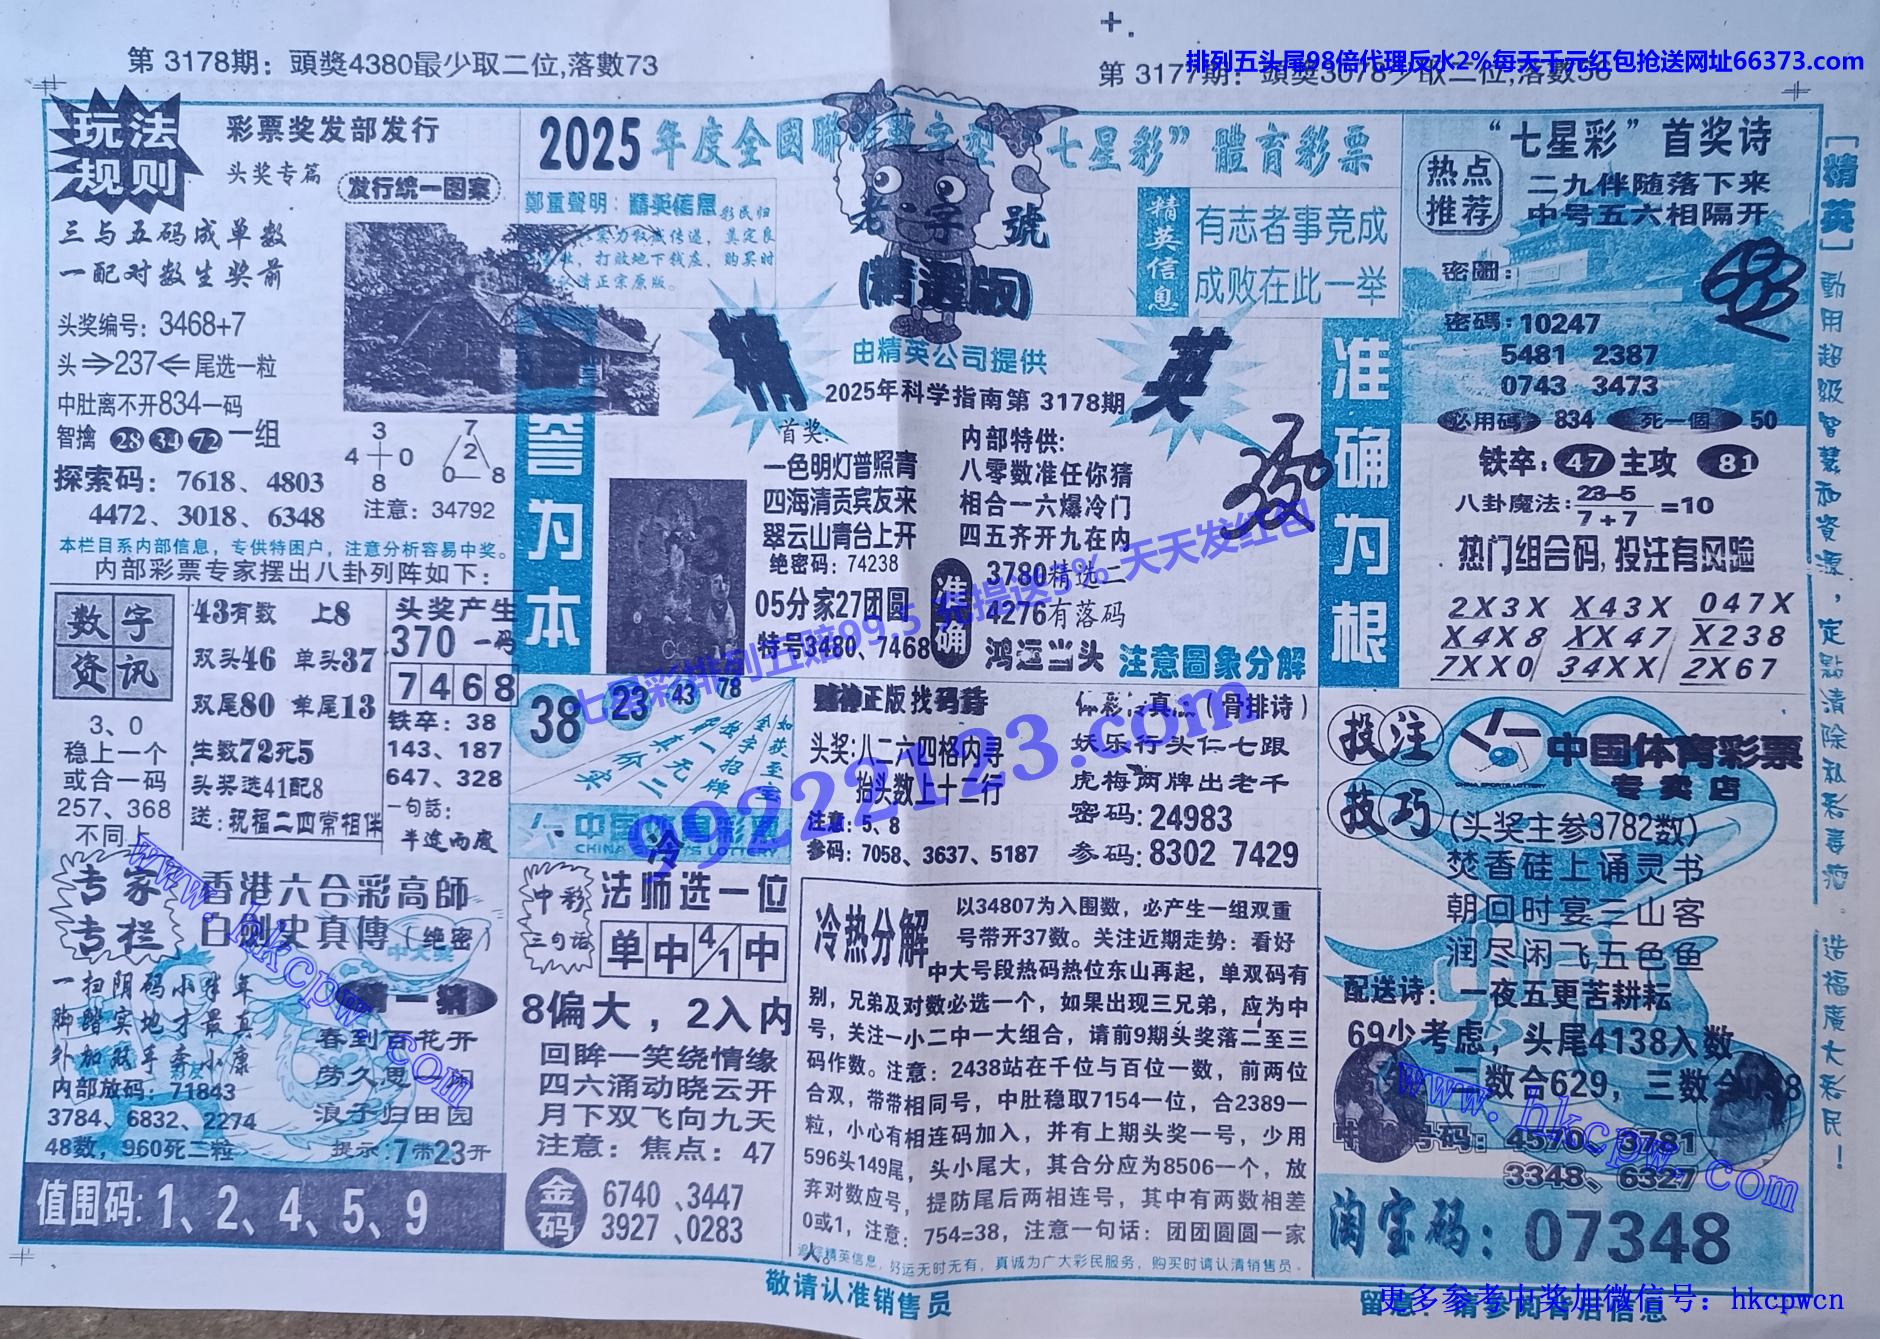 第 3178期：頭獎4380最少取二位,落數73
排列五头尾98倍代理反水2%每天千元红包抢送网址66373.com
玩法规则
彩票奖发部发行
头奖专篇
发行统一图案
三与五码成单数
一配对数生奖前
头奖编号：3468+7
头⇒237⇐尾选一粒
中肚离不开834一码
智擒 28 34 72 一组
3
4 0
8
7
2
0 8
探索码：7618、4803
4472、3018、6348
注意：34792
本栏目系内部信息，专供特困户，注意分析容易中奖。
内部彩票专家摆出八卦列阵如下：
数字资讯
3、0
稳上一个
或合一码
257、368
43有数 上8
双头46 单头37
双尾80 单尾13
生数72死5
头奖选41配8
送：祝福二四常相伴
头奖产生
370 一码
7468
铁卒：38
143、187
647、328
一句話：
半途而废
专家专栏
香港六合彩高師
白劍史真傳（绝密）
一扫阴码小半年
脚踏实地才最真
春到百花开
浪子归田园
提示：7带23开
内部放码：71843
3784、6832、2274
48数，960死二粒
值围码：1、2、4、5、9
2025年度全國聯 數字型“七星彩”體育彩票
鄭重聲明：精英信息
老字號
(精選版)
由精英公司提供
精英信息
有志者事竞成
成败在此一举
精 英
2025年科学指南第 3178期
誉为本
首奖：
一色明灯普照青
四海清贡宾友来
翠云山青台上开
绝密码：74238
05分家27团圆
特号3480、7468
内部特供：
八零数准任你猜
相合一六爆冷门
四五齐开九在内
准确
3780精选二
4276有落码
鸿运当头 注意圖象分解
准确为根
38 23 43 78
如获至宝
金字招牌
中国体育彩票
CHINA SPORTS LOTTERY
正版找码诗
头奖：八二六四格内寻
抬头数上十二行
注意：5、8
参码：7058、3637、5187
（骨排诗）
娱乐行头仁七跟
虎梅两牌出老千
密码：24983
参码：8302 7429
中彩三句话
法师选一位
单中4/1中
8偏大，2入内
回眸一笑绕情缘
四六涌动晓云开
月下双飞向九天
注意：焦点：47
金码
6740、3447
3927、0283
冷热分解
以34807为入围数，必产生一组双重
号带开37数。关注近期走势：看好
中大号段热码热位东山再起，单双码有
别，兄弟及对数必选一个，如果出现三兄弟，应为中
号，关注一小二中一大组合，请前9期头奖落二至三
码作数。注意：2438站在千位与百位一数，前两位
合双，带带相同号，中肚稳取7154一位，合2389一
粒，小心有相连码加入，并有上期头奖一号，少用
596头149尾，头小尾大，其合分应为8506一个，放
弃对数应号，提防尾后两相连号，其中有两数相差
0或1，注意：754=38，注意一句话：团团圆圆一家
人。
好运无时无有，真诚为广大彩民服务，购买时请认清销售员。
敬请认准销售员
“七星彩”首奖诗
热点推荐
二九伴随落下来
中号五六相隔开
密圖：
密碼：10247
5481 2387
0743 3473
必用碼 834 死一個 50
铁卒：47主攻 81
八卦魔法：23-5/7+7=10
热门组合码,投注有风险
2X3X X43X 047X
X4X8 XX47 X238
7XX0 34XX 2X67
投注技巧
中国体育彩票
CHINA SPORTS LOTTERY
专卖店
(头奖主参3782数)
焚香硅上诵灵书
朝回时宴三山客
润尽闲飞五色鱼
配送诗：一夜五更苦耕耘
69少考虑，头尾4138入数
二数合629，三数合
号码：4570、3781
3348、6327
淘宝码：07348
[精英]動用超级智慧和資源，定點清除私彩毒瘤 造福廣大彩民！
七星彩排列五赔99.5 充提送3% 天天发红包
99222123.com
www.hkcpw.com
www.hkcpw.com
更多参考中奖加微信号：hkcpwcn